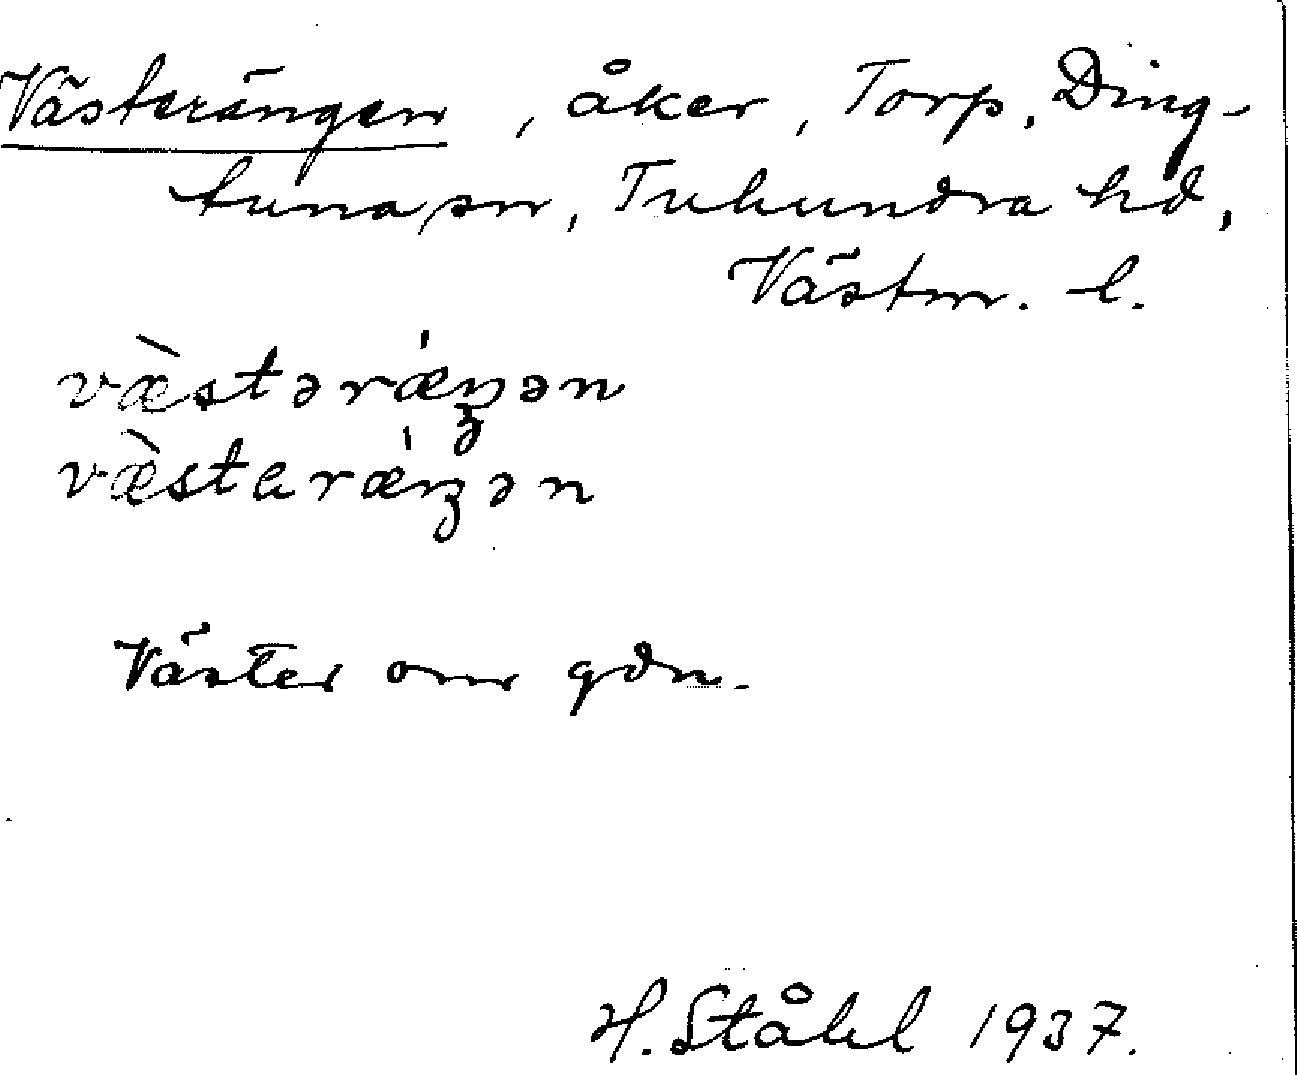 Västerängen, åker, Torp, Ding-
tuna sn, Tuhundra hd,
Västm. l.
væ̀stərǽŋən
væ̀starǽŋən
Väster om gdn.
H. Ståhl 1937.